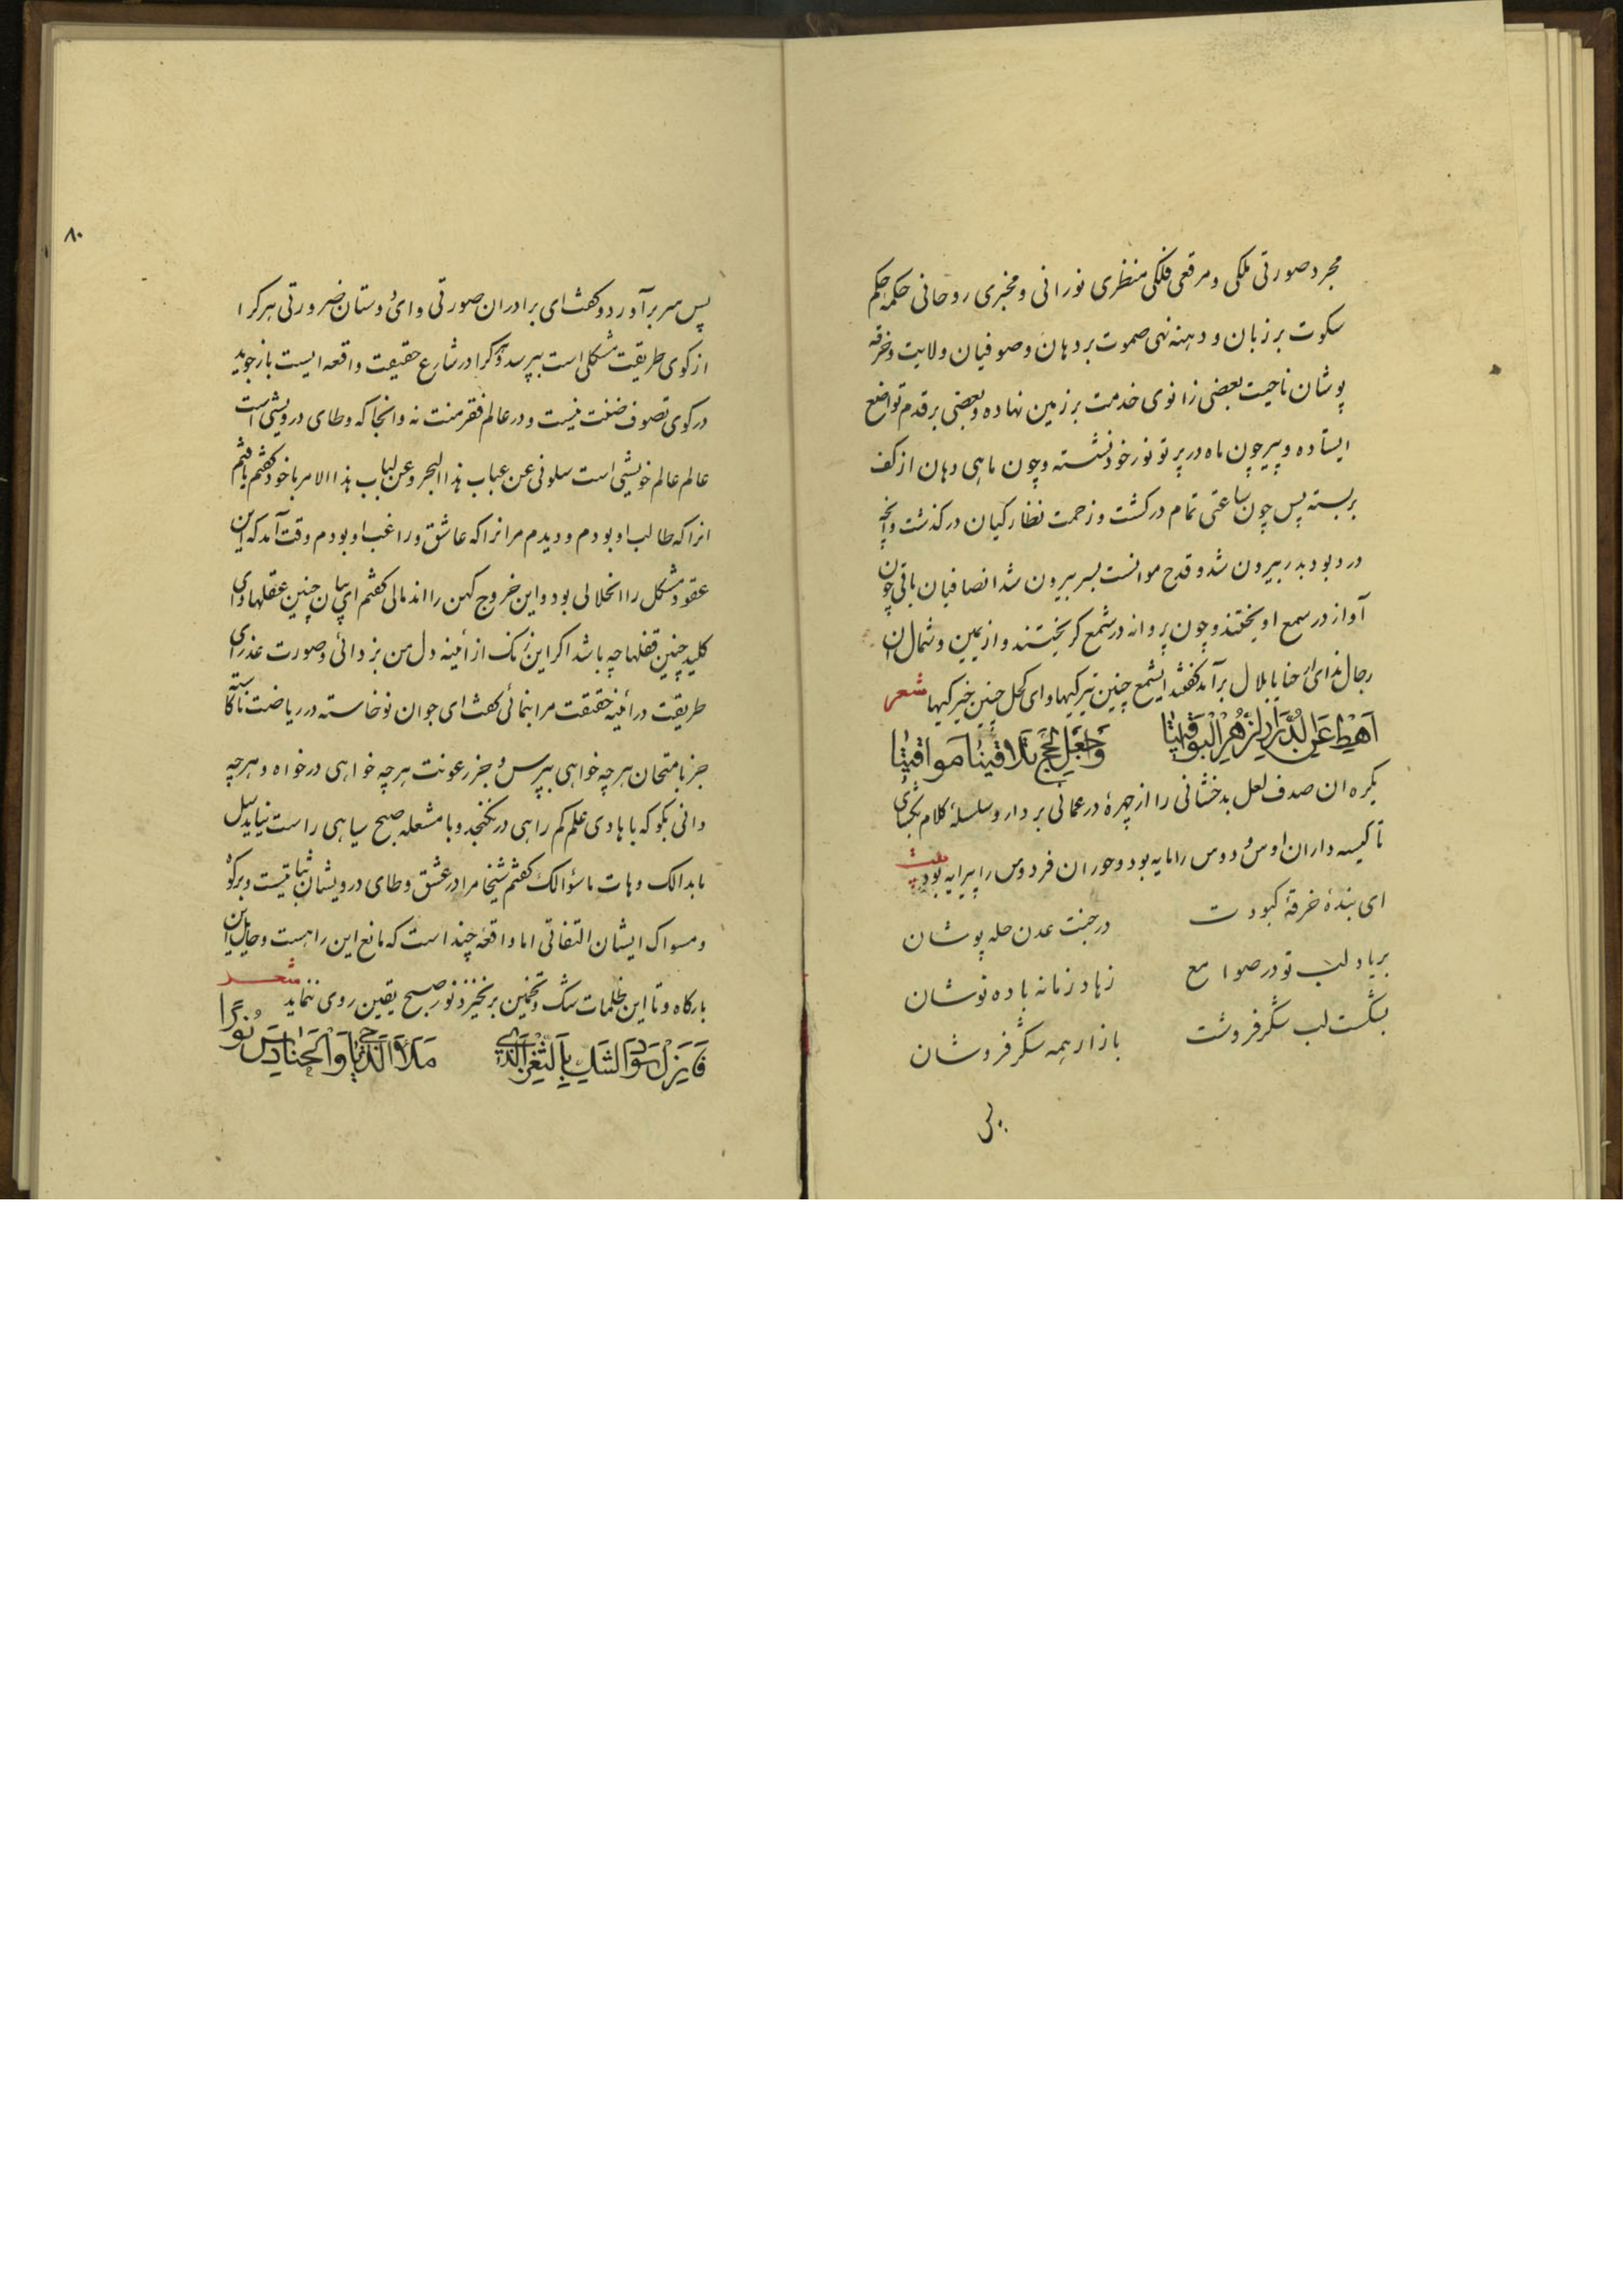 مجرد صورتی ملکی و مرقعی فلکی منظری نورانی و مخبری روحانی حکمه حکم
سکوت بر زبان و دهنه نهی صموت بر دهان و صوفیان ولایت و خرقه
پوشان ناحیت بعضی زانوی خدمت بر زمین نهاده و بعضی بر قدم تواضع
ایستاده و پیر چون ماه در پرتو نور خود نشسته و چون ماهی دهان از کف
بربسته پس چون ساعتی تمام در کشت و زحمت نظارکیان در کذشت وانچه
درد بود بدر بیرون شد و قدح موانست بسر بیرون شد انصافیان باقی چون
آواز در سمع اویختند و چون پروانه در شمع کریختند و از یمین و شمال ان
رجال ندای ارحنا یا بلال برآمد کفتند ایشمع چنین تیرکیها و ای کحل چنین خیرکیها شعر
اهبط عن الدرر الزهر الیواقیتا واجعل لحج تلاقینا مواقیتا
یکره ان صدف لعل بدخشانی را از چهرهٔ در عمانی بردار و سلسلهٔ کلام بکشای
تا کیسه داران اوس و دوس را مایه بود و حوران فردوس را پیرایه بود بیت
ای بندهٔ خرقهٔ کبودت در جنت عدن حله پوشان
بریاد لب تو در صوامع زهاد زمانه باده نوشان
بشکست لب شکر فروشت بازار همه شکر فروشان
پس
۸۰
پس سر برآورد و کفت ای برادران صورتی و ای دوستان ضرورتی هر کرا
از کوی طریقت مشکلی است بپرسد و هر کرا در شارع حقیقت واقعه ایست باز جوید
در کوی تصوف ضنت نیست و در عالم فقر منت نه وانجا که وطای درویشی است
عالم عالم خویشی است سلونی عن عباب هذا البحر وعن لباب هذا الامر با خود کفتم یافتم
انرا که طالب او بودم و دیدم مر انرا که عاشق و راغب او بودم وقت آمد که این
عقود مشکل را انحلالی بود و این خروج کهن را اندمالی کفتم ای بیان چنین عقلها و ای
کلید چنین قفلها چه باشد اکر این زنک از آئینه دل من بزدائی و صورت عذرای
طریقت در آئینه حقیقت مرا بنمائی کفت ای جوان نوخاسته در ریاضت ناکاسته
جز بامتحان هر چه خواهی بپرس و جز رعونت هر چه خواهی درخواه و هر چه
دانی بکو که با هادی علم کم راهی درنکنجد و با مشعله صبح سیاهی راست نیاید سل
ما بدالک وهات ما سؤالک کفتم شیخا مرا در عشق وطای درویشان ثباتیست و برکوه
و مسواک ایشان التفاتی اما واقعه چند است که مانع این راهست و حایل این
بارکاه و تا این ظلمات شک و تخمین برنخیزد نور صبح یقین روی ننماید شعر
فایزل سواد الشک بالثغر الذی ملأ الدجی والحنادس نورا